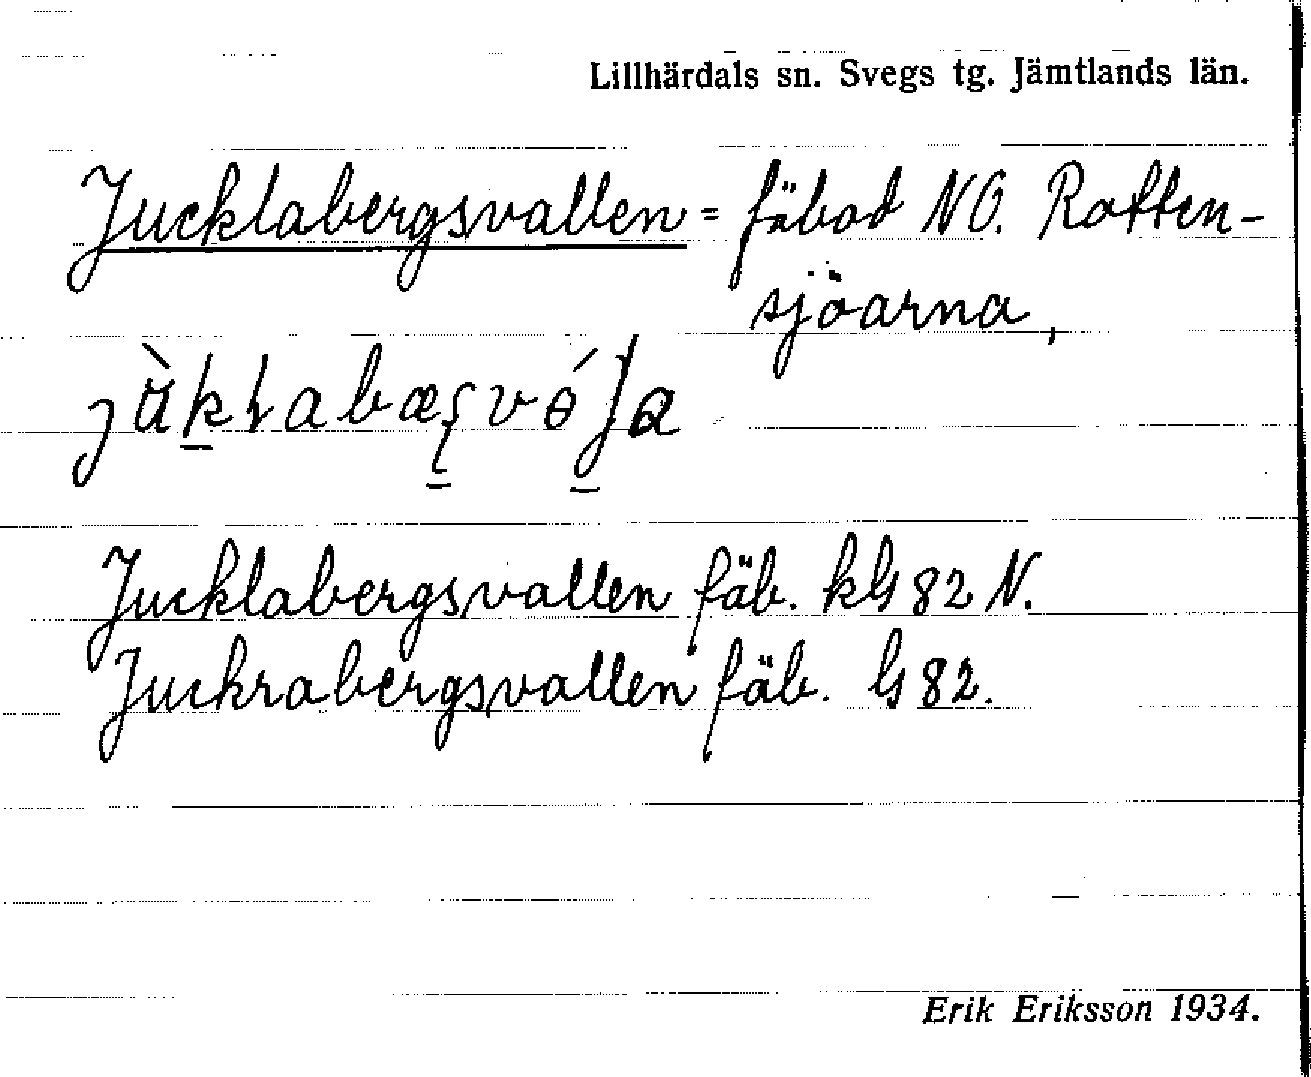 Lillhärdals sn. Svegs tg. Jämtlands län.
Jucklabergsvallen = fäbod NO. Rotten-
sjöarna,
Jucklabergsvallen fäb. kG 82 N.
Juckrabergsvallen fäb. G 82.
Erik Eriksson 1934.